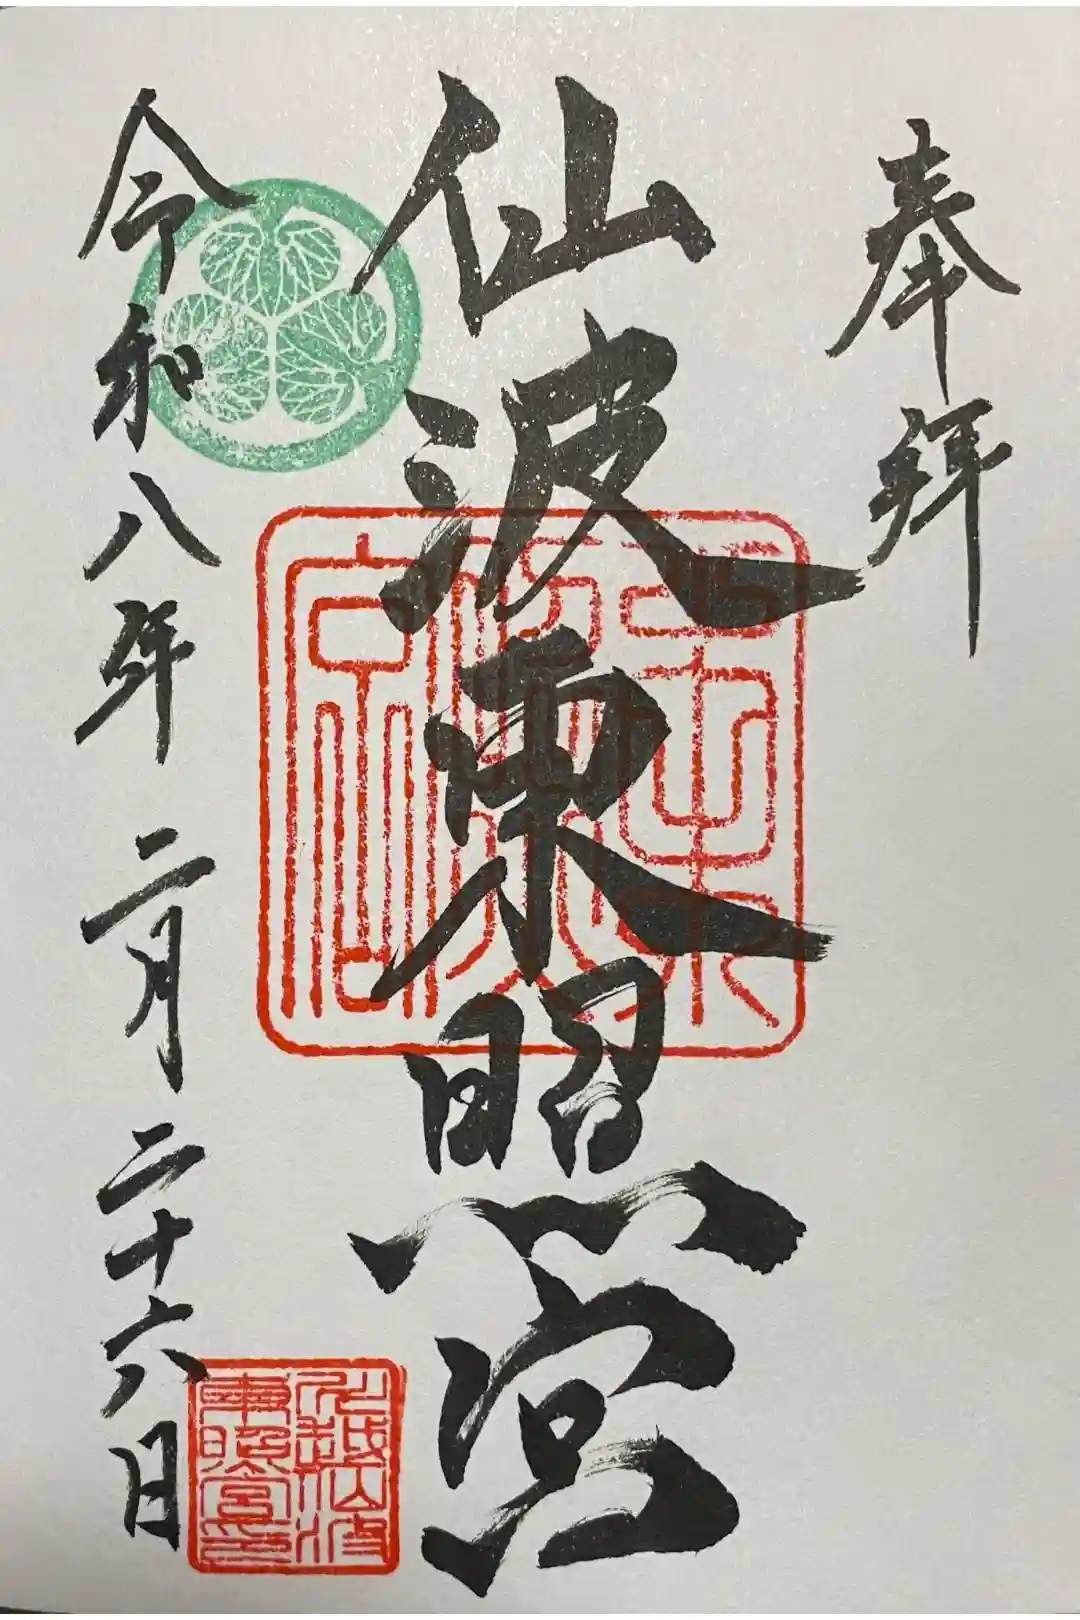 奉拝
仙波東照宮
令和八年 二月 二十六日
東照宮